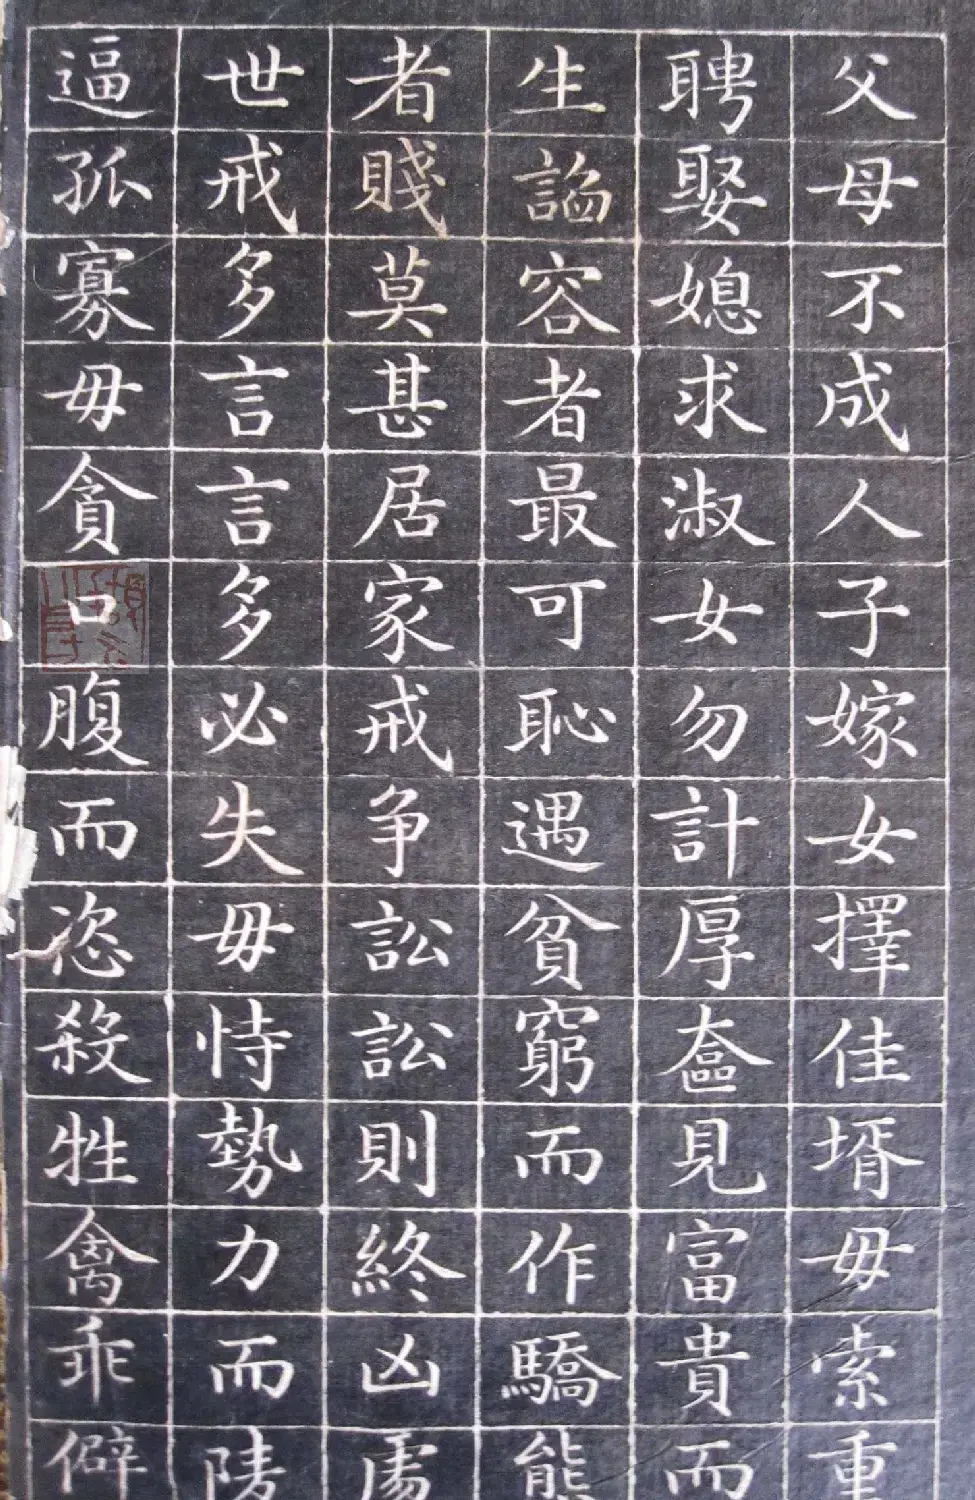 父母不成人子嫁女擇佳壻毋索重
聘娶媳求淑女勿計厚奩見富貴而
生諂容者最可恥遇貧窮而作驕態
者賤莫甚居家戒争訟訟則終凶處
世戒多言言多必失毋恃勢力而陵
逼孤寡毋貪口腹而恣殺牲禽乖僻